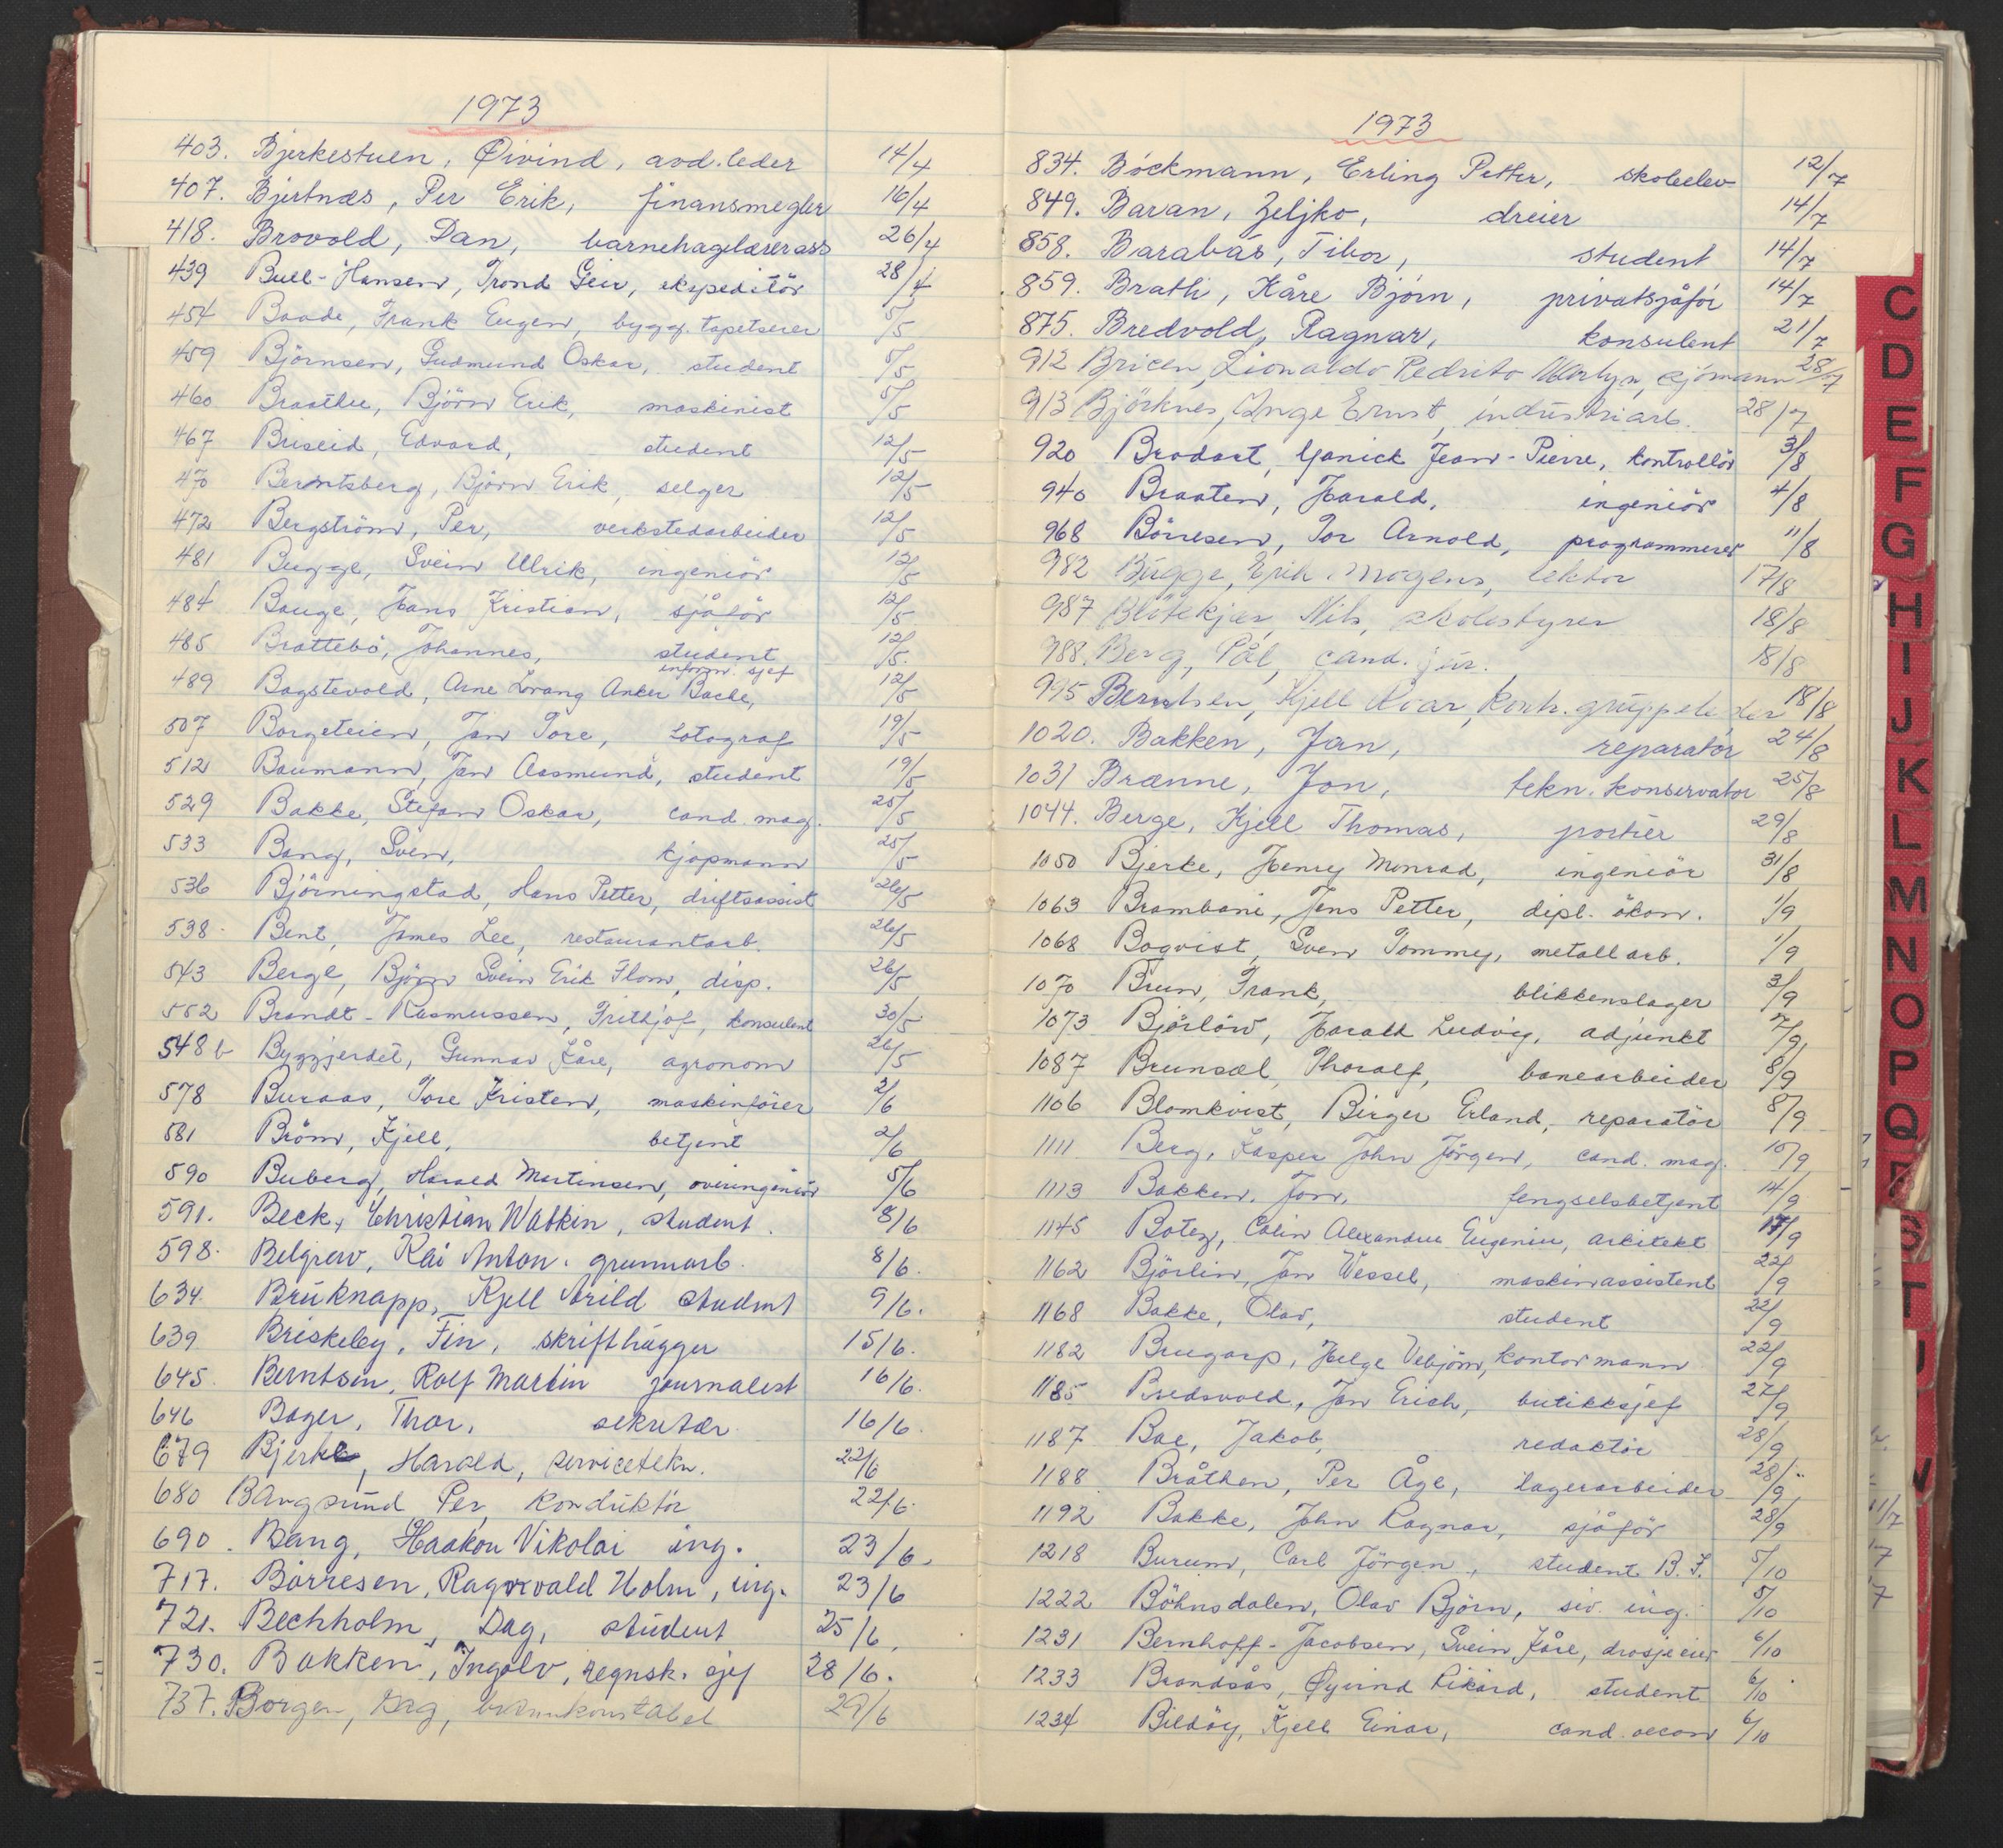 1973
403. Bjerkestuen, Øivind, avd.leder 14/4
407. Bjertnæs, Per Erik, finansmegler 16/4
418. Brovold, Dan, barnehagelærerass 26/4
439 Bull-Hansen, Trond Geir, ekspeditör 28/4
454 Baade, Frank Eugen, bygg.tapetserer 5/5
459 Björnsen, Gudmund Oskar, student 5/5
460 Braathe, Björn Erik, maskinist 5/5
467 Briseid, Edvard, student 12/5
470 Berntsberg, Björn Erik, selger 12/5
472 Bergström, Per, verkstedarbeider 12/5
481 Bugge, Svein Ulrik, ingeniör 12/5
484 Bauge, Hans Kristian, sjåför 12/5
485 Brattebö, Johannes, student 12/5.
inform. sjef
489 Bagstevold, Arne Lorang Anker Bache, 12/5
507 Borgeteien, Jan Tore, fotograf 19/5
512 Baumann, Jan Aasmund, student 19/5
529 Bakke, Stefan Oskar, cand. mag. 25/5
533 Bang, Sven, kjøpmann 25/5
536 Björningstad, Hans Petter, driftsassist 26/5
538 Bent, James Lee, restaurantarb. 26/5
543 Berge, Björn Svein Erik Flom, disp. 26/5
552 Brandt-Rasmussen, Fridtjof, konsulent 30/5
548 b Byggjerdet, Gunnar Kåre, agronom 26/5
578 Buraas, Tore Kristen, maskinförer 2/6
581 Bröm, Kjell, betjent 2/6
590 Buberg, Harald Martinsen, overingeniör 5/6
591. Beck, Christian Watkin, student. 8/6
598. Belgrav, Kai Anton. grunnarb. 8/6.
634. Bruknapp, Kjell Arild student 9/6.
639 Briskeby, Fin, skrifthugger 15/6.
645. Berntsen, Rolf Martin journalist 16/6.
646 Bager, Thor, sekretær 16/6.
679 Bjerke, Harald, servicetekn. 22/6
680 Bangsund Per, konduktör 22/6.
690. Bang, Haakon Nikolai ing. 23/6.
717. Børresen, Ragnvald Holm, ing. 23/6
721. Bechholm, Dag, student 25/6.
730. Bakken, Ingolv, regnsk. sjef 28/6.
737. Borgen, Dag, brannkonstabel 29/6
1973
834. Böckmann, Erling Petter, skoleelev 12/7
849. Bavan, Zeljko, dreier 14/7
858. Barabás, Tibor, student 14/7
859. Brath, Kåre Björn, privatsjåför 14/7
875. Bredvold, Ragnar, konsulent 21/7
912 Bricen, Lionaldo Pedrito sjömann 28/7
913 Björknes, Inge Ernst, industriarb. 28/7
920 Brodart, Yanick Jean-Pierre, kontrollör 3/8
940 Braaten, Harald, ingeniör 4/8
968 Börresen, Tor Arnold, programmerer 11/8
982 Bugge, Erik Mogens, lektor 17/8
987 Blötekjær, Nils, skolestyrer 18/8
988. Berg, Pål, cand. jur. 18/8
995 Berntsen, Kjell Roar, kontr. gruppeleder 18/8
1020. Bakken, Jan, reparatör 24/8
1031 Brænne, Jon, tekn. konservator 25/8
1044. Berge, Kjell Thomas, portier 29/8
1050 Bjerke, Henry Monrad, ingeniör 31/8
1063 Brambani, Jens Petter, dipl. ökon. 1/9
1068 Boqvist, Sven Tommy, metallarb. 1/9
1070 Brun, Frank, blikkenslager 3/9
1073 Björlöw, Harald Ludvig, adjunkt 7/9
1087 Brunsæl, Thoralf, banearbeider 8/9
1106 Blomkvist, Birger Erland, reparatör 8/9
1111 Berg, Kasper John Jörgen, cand. mag. 10/9
1113 Bakken, Jan, fengselsbetjent 14/9
1145 Botez, Calin Alexandru Eugeniu, arkitekt 17/9
1162 Björlin, Jan Wessel, maskinassistent 22/9
1168 Bakke, Olav, student 22/9
1182 Brugarp, Helge Vebjörn, kontormann 22/9
1185 Bredsvold, Jan Erich, butikksjef 27/9
1187 Boe, Jakob, redaktör 28/9
1188 Bråthen, Per Åge, lagerarbeider 28/9
1192 Bakke, John Ragnar, sjåför 28/9
1218 Burum, Carl Jörgen, student B.I. 5/10
1222 Böhnsdalen, Olav Björn, siv. ing. 5/10
1231 Bernhoff-Jacobsen, Svein Kåre, drosjeeier 6/10
1233 Brandsås, Øyvind Rikard, student 6/10
1234 Bildöy, Kjell Einar, cand. oecon 6/10
C
D
E
F
G
H
I
J
K
L
M
N
O
P
Q
R
S
T
U